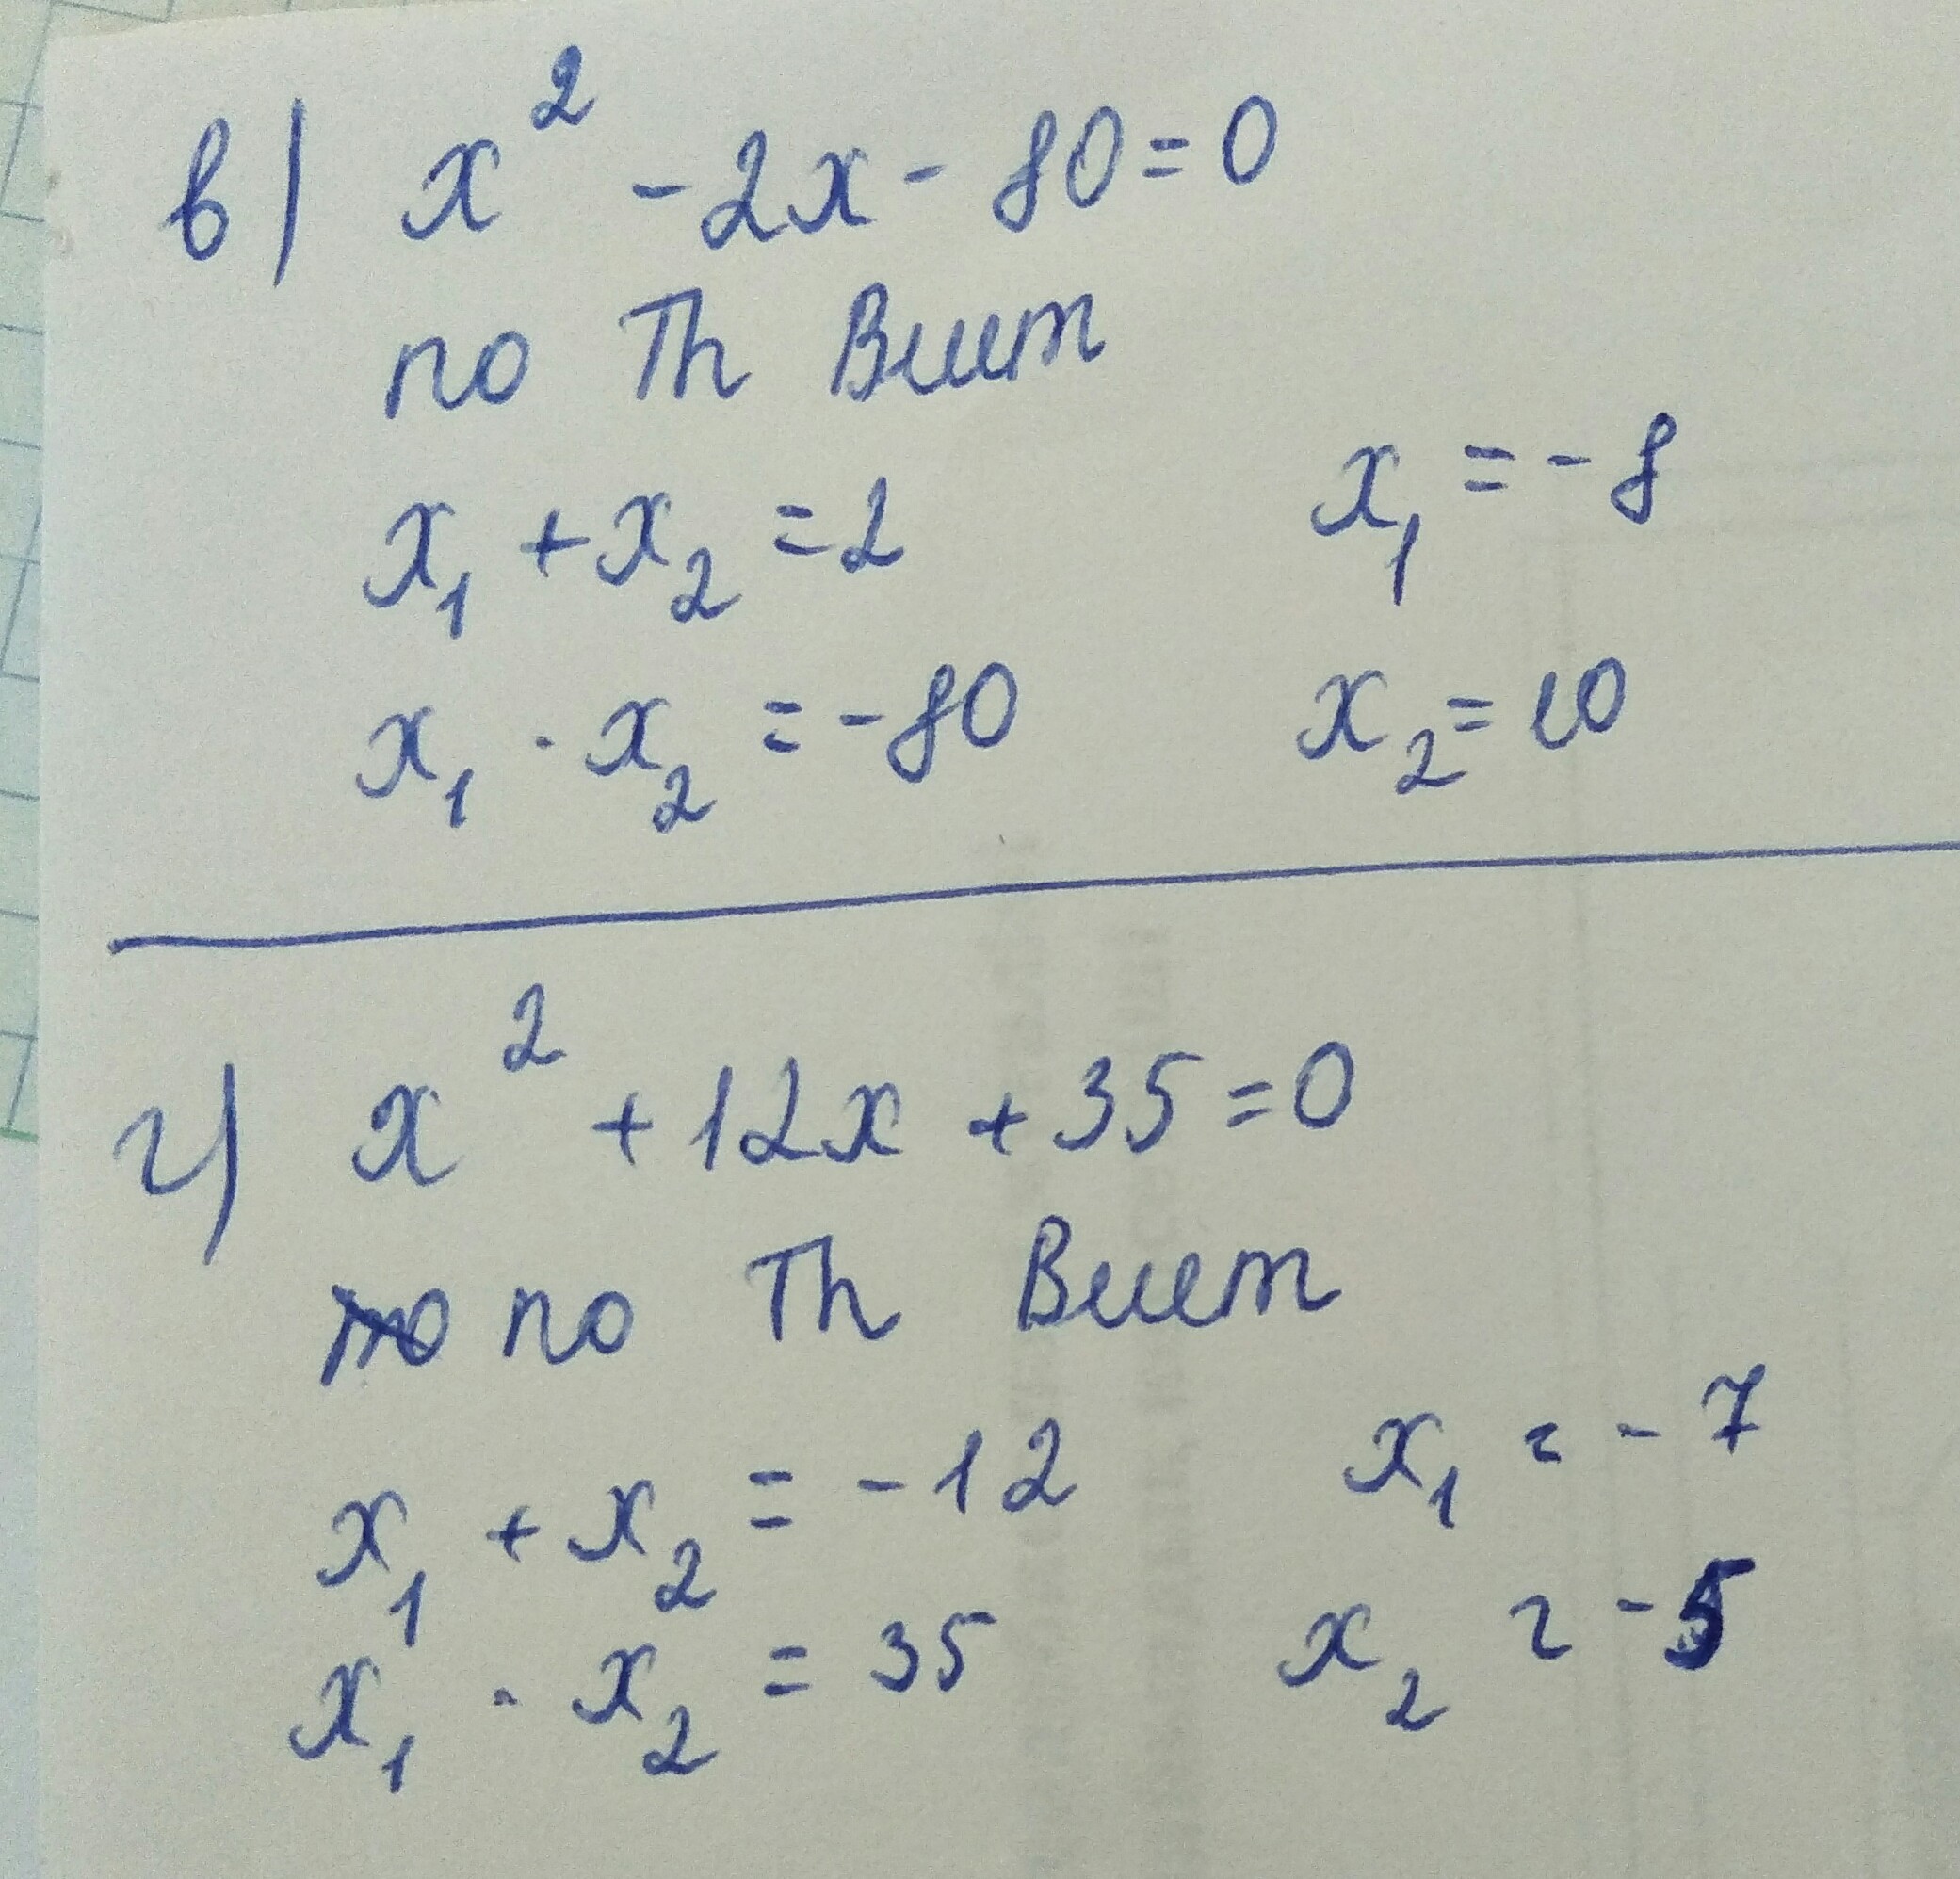 в) x² - 2x - 80 = 0
по Th Виет
x₁ + x₂ = 2
x₁ = -8
x₁ · x₂ = -80
x₂ = 10
г) x² + 12x + 35 = 0
по Th Виет
x₁ + x₂ = -12
x₁ = -7
x₁ · x₂ = 35
x₂ = -5